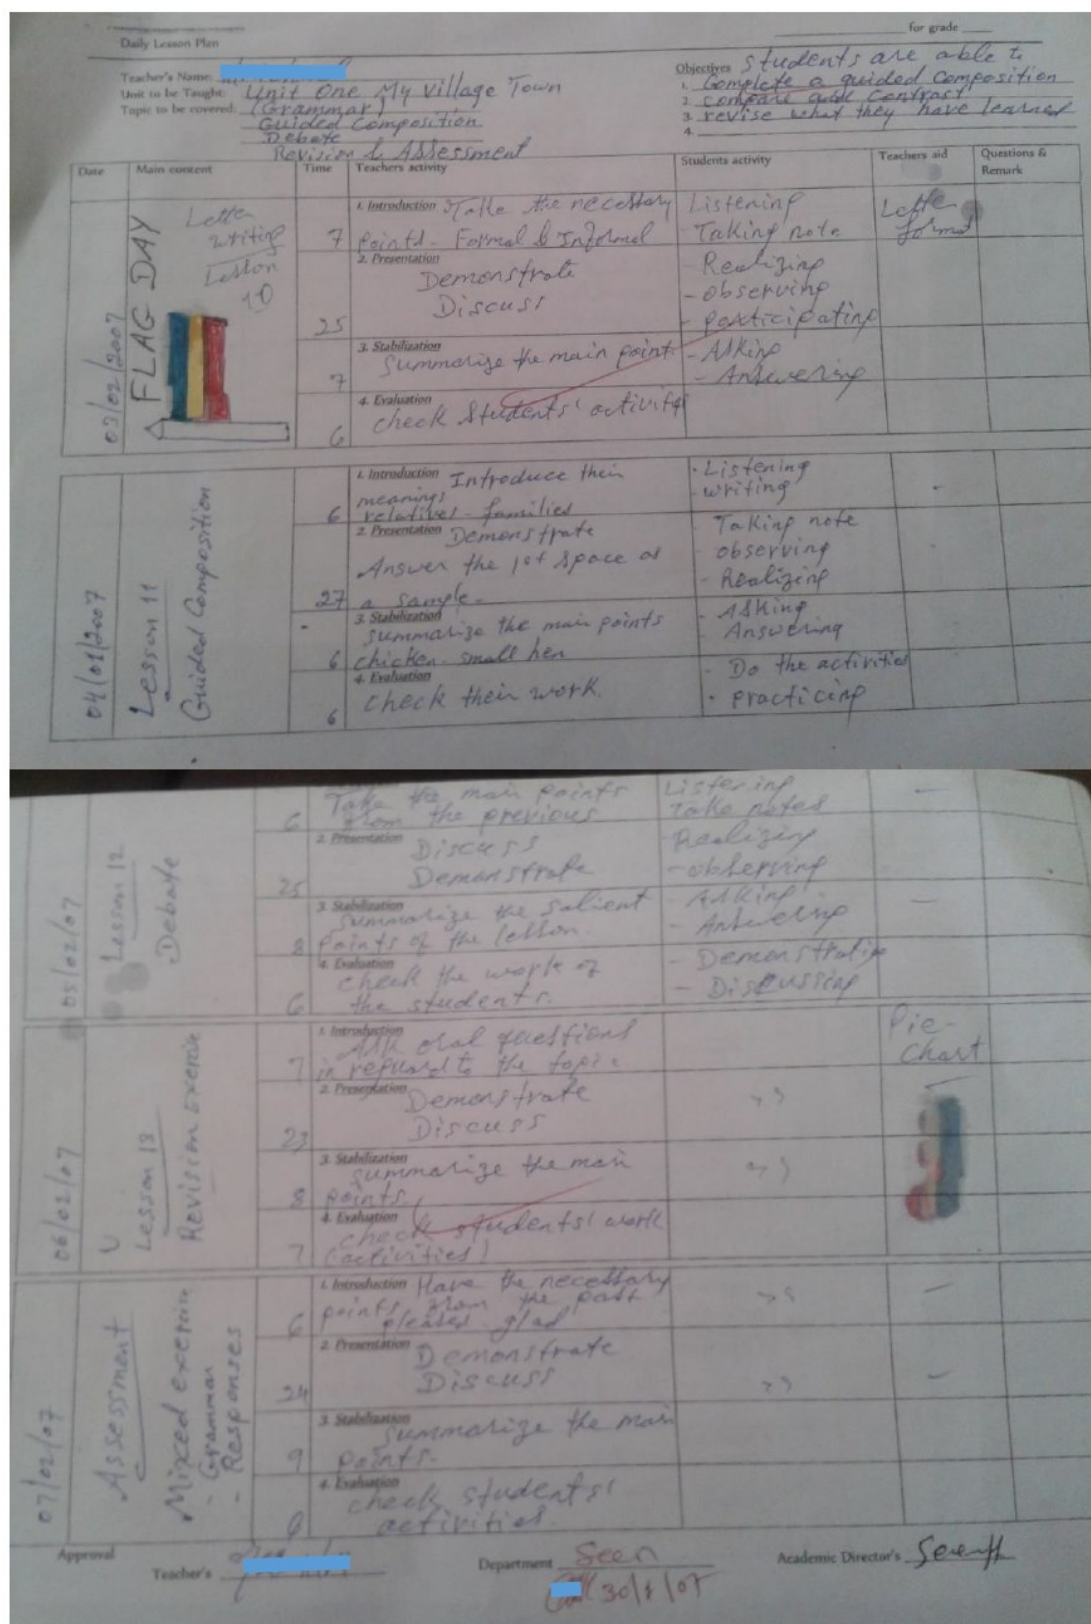 for grade
Daily Lesson Plan
Teacher's Name:
Unit to be Taught: Unit One My Village Town
Topic to be covered: (Grammar)
Guided Composition
Debate
Revision & Assessment
Objectives Students are able to
1. Complete a guided Composition
2. compare and Contrast
3. revise what they have learned
4.
Date Main content Time Teachers activity Students activity Teachers aid Questions & Remark
03/02/2007
FLAG DAY
Letter
writing
Lesson
10
7
1. Introduction Take the necessary
points - Formal & Informal
Listening
Taking note
Letter
format
25
2. Presentation
Demonstrate
Discuss
- Realizing
- observing
- participating
7
3. Stabilization
Summarize the main point
- Asking
- Answering
6
4. Evaluation
check Students' activity
04/02/2007
Lesson 11
Guided Composition
6
1. Introduction Introduce their
meanings
relatives - families
- Listening
- writing
27
2. Presentation Demonstrate
Answer the 1st space as
a sample -
Taking note
- observing
- Realizing
6
3. Stabilization
summarize the main points
chicken - small hen
- Asking
- Answering
6
4. Evaluation
check their work.
- Do the activities
- practicing
05/02/07
Lesson 12
Debate
6
Take the main points
from the previous
Listening
Take notes
25
2. Presentation
Discuss
Demonstrate
- Realizing
- observing
8
3. Stabilization
summarize the salient
points of the lesson.
- Asking
- Answering
6
4. Evaluation
check the work of
the students.
- Demonstrating
- Discussing
06/02/07
Lesson 13
Revision Exercise
7
1. Introduction
Ask oral questions
in reguard to the topic
Pie-
Chart
23
2. Presentation
Demonstrate
Discuss
,,
8
3. Stabilization
summarize the main
points.
,,
7
4. Evaluation
check students' work
(activities)
07/02/07
Assessment
Mixed exercise
- Grammar
- Responses
6
1. Introduction Have the necessary
points from the past
pleased - glad
,,
24
2. Presentation
Demonstrate
Discuss
,,
9
3. Stabilization
summarize the main
points -
6
4. Evaluation
check students'
activities.
Approval
Teacher's
Department Seen
30/1/07
Academic Director's